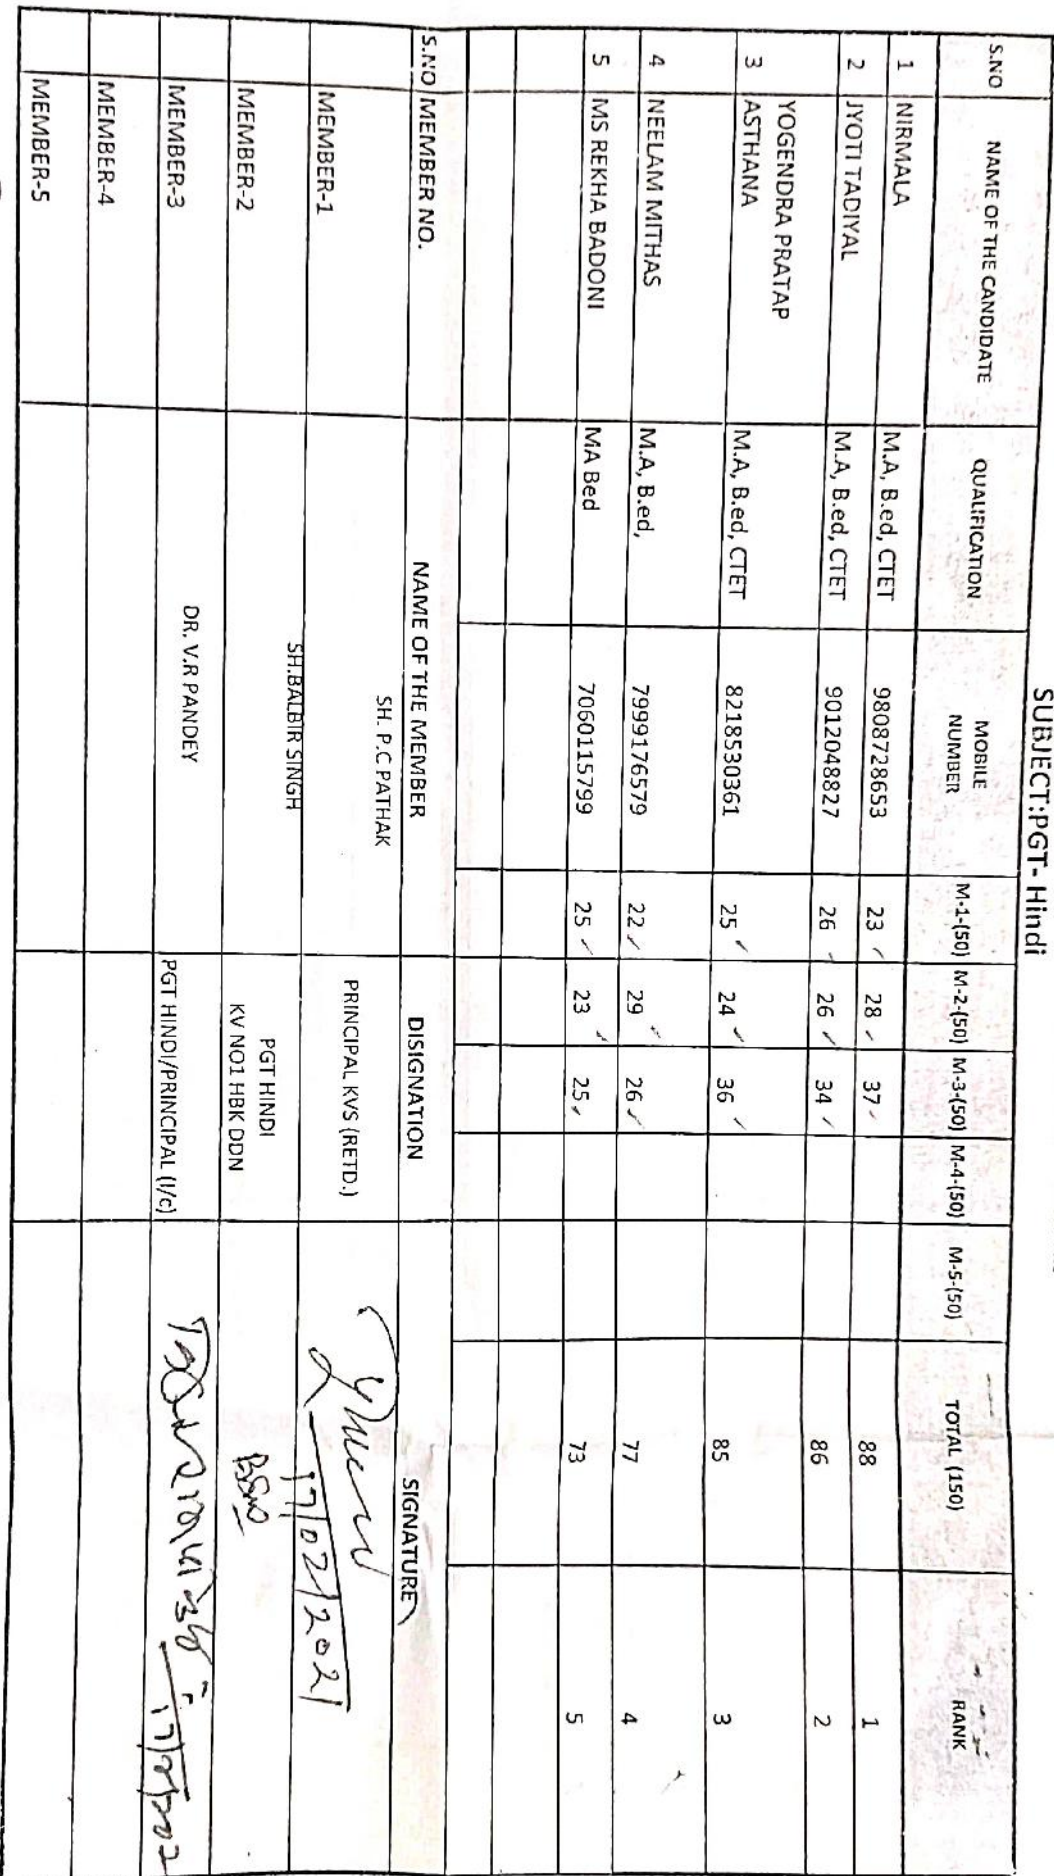 SUBJECT:PGT- Hindi
S.NO NAME OF THE CANDIDATE QUALIFICATION MOBILE NUMBER M-1-(50) M-2-(50) M-3-(50) M-4-(50) M-5-(50) TOTAL (150) RANK
1 NIRMALA M.A, B.ed, CTET 9808728653 23 28 37 88 1
2 JYOTI TADIYAL M.A, B.ed, CTET 9012048827 26 26 34 86 2
YOGENDRA PRATAP
3 ASTHANA M.A, B.ed, CTET 8218530361 25 24 36 85 3
4 NEELAM MITHAS M.A, B.ed, 7999176579 22 29 26 77 4
5 MS REKHA BADONI MA Bed 7060115799 25 23 25 73 5
S.NO MEMBER NO. NAME OF THE MEMBER DISIGNATION SIGNATURE
SH. P.C PATHAK PRINCIPAL KVS (RETD.)
MEMBER-1 17/02/2021
SH.BALBIR SINGH PGT HINDI
MEMBER-2 KV NO1 HBK DDN
MEMBER-3 DR. V.R PANDEY PGT HINDI/PRINCIPAL (I/c)
MEMBER-4
MEMBER-5